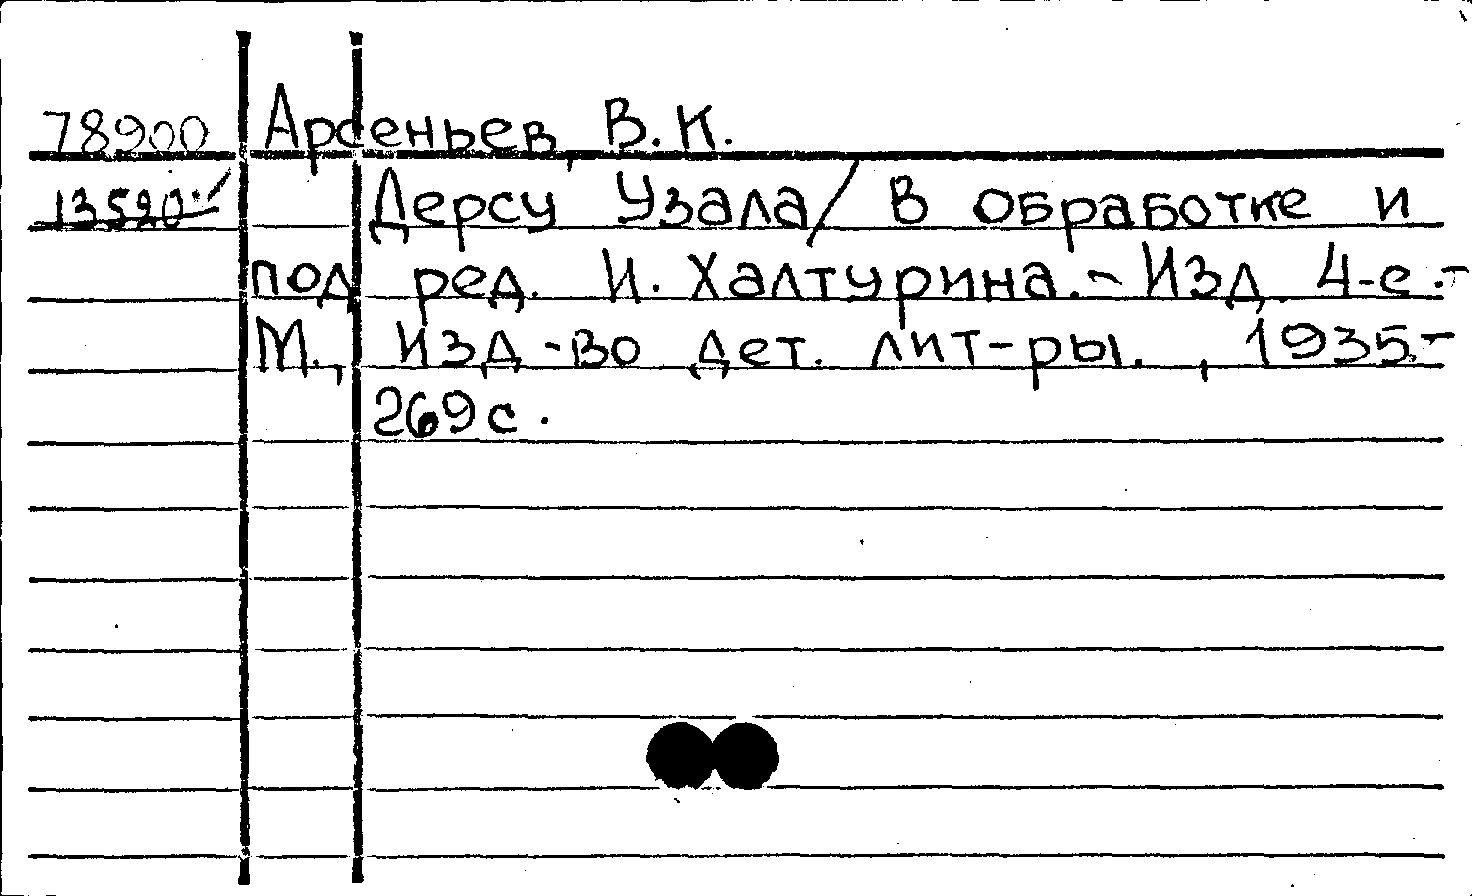 78900 Арсеньев, В.К.
13520 Дерсу Узала/ В обработке и
под ред. И. Халтурина.- Изд. 4-е.-
М., Изд-во дет. лит-ры., 1935.-
269с.